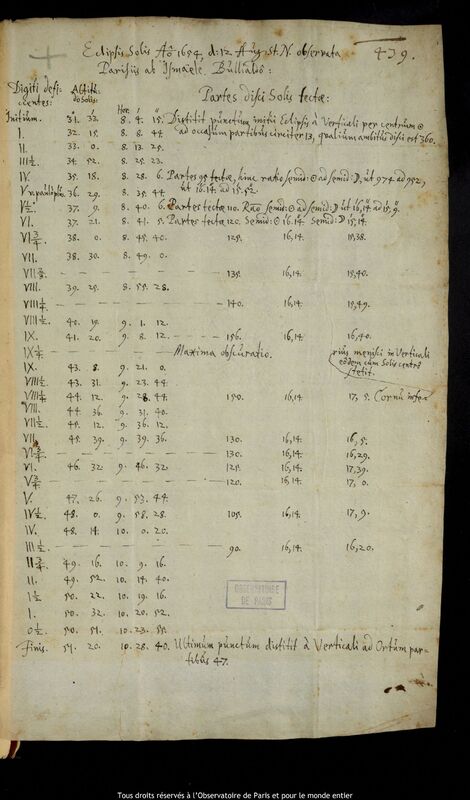 Eclipsis Solis Aō 1654, d: 12 Aug. St. N. observata 439.
Parisiis ab Ismaële Bullialdo:
Digiti defi- Altitu-
cientes: do Solis: Partes disci Solis tectæ:
Hor. ı ıı
Initium. 31. 33. 8. 4. 15. Distitit punctum initii Eclipsis à Verticali per centrum ☉
I. 32. 15. 8. 8. 44 ad occasum partibus circiter 13, qualium ambitus disci est 360.
II. 33. 0. 8. 13. 25.
III½. 34. 52. 8. 25. 23.
IV. 35. 18. 8. 28. 6. Partes 95 tectæ, hinc ratio semid: ☉ ad semid: ☽, ut 974 ad 952,
V. 36. 29. 8. 35. 44. ut 16,14. ad 15.52.
V½. 37. 9. 8. 40. 6. Partes tectæ 110. Rāo semid: ☉ ad semid: ☽ ut 16,14 ad 15,9.
VI. 37. 21. 8. 41. 5. Partes tectæ 120. Semid: ☉ 16.14. Semid: ☽ 15,14.
VI¾ 38. 0. 8. 45. 40. 125. 16,14. 15,38.
VII. 38. 30. 8. 49. 0.
VII¾. 135. 16,14. 15,40.
VIII. 39. 25. 8. 55. 28.
VIII¼ 140. 16,14. 15,49.
VIII½. 40. 19. 9. 1. 12.
IX. 41. 20. 9. 8. 12. 156. 16,14. 16,40.
IX¼ Maxima obscuratio. rius menisci in Verticali
IX. 43. 8. 9. 21. 0. eodem cum Solis centro
VIII½ 43. 31. 9. 23. 44. stetit.
VIII¼ 44. 12. 9. 28. 44. 150. 16,14. 17, 5. Cornu inte=
VIII. 44. 36. 9. 31. 40.
VII½ 45. 12. 9. 36. 12.
VII. 45. 39. 9. 39. 36. 130. 16,14. 16,5.
VI¾ 130. 16,14. 16,29.
VI. 46. 32. 9. 46. 32. 125. 16,14. 17,39.
V¾ 120. 16,14. 17, 0.
V. 47. 26. 9. 53. 44.
IV½ 48. 0. 9. 58. 28. 105. 16,14. 17, 9.
IV. 48. 14. 10. 0. 20.
III½. 90. 16,14. 16,20.
II¾ 49. 16. 10. 9. 16.
II. 49. 52. 10. 14. 40.
I½ 50. 22. 10. 19. 16.
I. 50. 32. 10. 20. 52.
0½. 50. 51. 10. 23. 55.
Finis. 51. 20. 10. 28. 40. Ultimum punctum distitit à Verticali ad Ortum par-
tibus 47.
OBSERVATOIRE
DE PARIS
Tous droits réservés à l'Observatoire de Paris et pour le monde entier